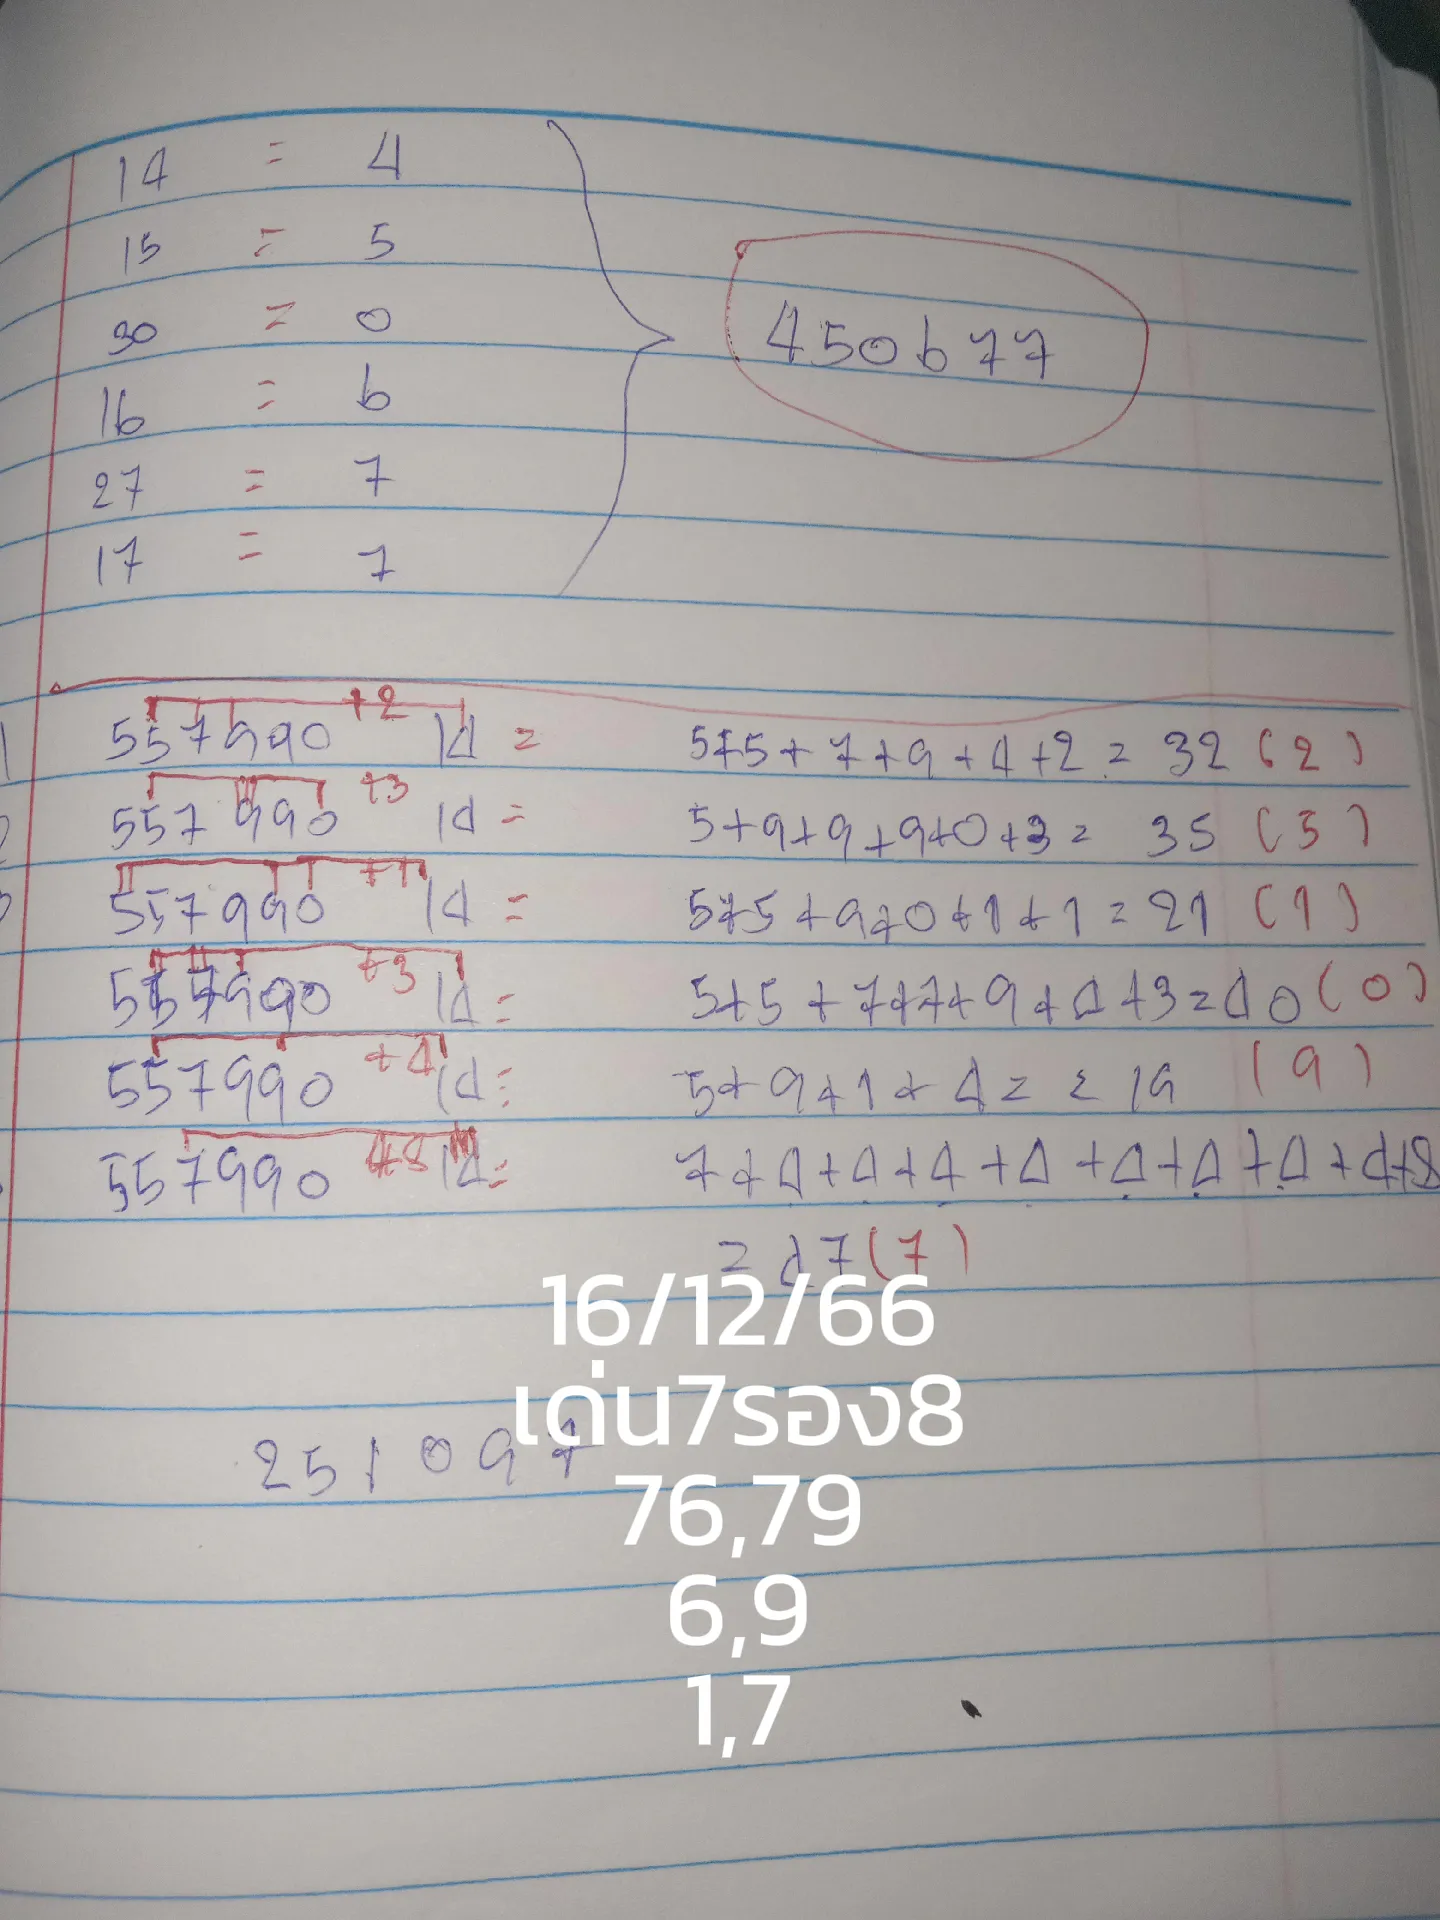 14 = 4
15 = 5
30 = 0
16 = 6
27 = 7
17 = 7
450677
1 557990 +2 14 = 5+5+7+9+4+2 = 32 (2)
557990 +3 14 = 5+9+9+9+0+3 = 35 (5)
557990 +1 14 = 5+5+9+0+1+1 = 21 (1)
557990 +3 14 = 5+5+7+7+9+4+3 = 40 (0)
557990 +4 14 = 5+9+1+4 = = 19 (9)
557990 +8 14 = 7+4+4+4+4+4+4+4+4+8
= 47 (7)
16/12/66
เด่น7รอง8
251097
76,79
6,9
1,7